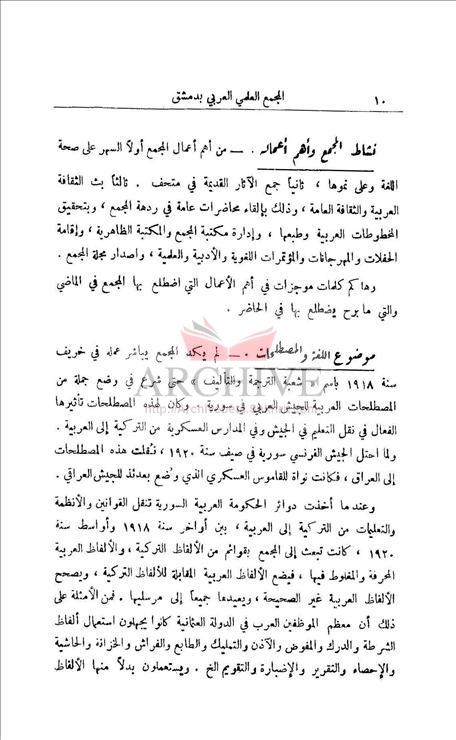 ١٠ المجمع العلمي العربي بدمشق
نشاط المجمع وأهم أعماله . — من أهم أعمال المجمع أولاً السهر على صحة
اللغة وعلى نموها ، ثانياً جمع الآثار القديمة في متحف . ثالثاً بث الثقافة
العربية والثقافة العامة ، وذلك بإلقاء محاضرات عامة في ردهة المجمع ، وبتحقيق
المخطوطات العربية وطبعها ، وإدارة مكتبة المجمع والمكتبة الظاهرية ، وإقامة
الحفلات والمهرجانات والمؤتمرات اللغوية والأدبية والعلمية ، وإصدار مجلة المجمع .
وهاكم كلمات موجزات في أهم الأعمال التي اضطلع بها المجمع في الماضي
والتي ما برح يضطلع بها في الحاضر .
موضوع اللغة والمصطلحات . — لم يكد المجمع يباشر عمله في خريف
سنة ١٩١٨ باسم « شعبة الترجمة والتأليف » حتى شرع في وضع جملة من
المصطلحات العربية للجيش العربي في سورية . وكان لهذه المصطلحات تأثيرها
الفعال في نقل التعليم في الجيش وفي المدارس العسكرية من التركية إلى العربية .
ولما احتل الجيش الفرنسي سورية في صيف سنة ١٩٢٠ ، نقلت هذه المصطلحات
إلى العراق ، فكانت نواة للقاموس العسكري الذي وُضع بعدئذ للجيش العراقي .
وعندما أخذت دوائر الحكومة العربية السورية تنقل القوانين والأنظمة
والتعليمات من التركية إلى العربية ، بين أواخر سنة ١٩١٨ وأواسط سنة
١٩٢٠ ، كانت تبعث إلى المجمع بقوائم من الألفاظ التركية ، والألفاظ العربية
المحرفة والمغلوط فيها ، فيضع الألفاظ العربية المقابلة للألفاظ التركية ، ويصحح
الألفاظ العربية غير الصحيحة ، ويعيدها جميعاً إلى مرسليها . فمن الأمثلة على
ذلك أن معظم الموظفين العرب في الدولة العثمانية كانوا يجهلون استعمال ألفاظ
الشرطة والدرك والمفوض والآذن والتمليك والطابع والفراش والخزانة والحاشية
والإحصاء والتقرير والإضبارة والتقويم الخ . ويستعملون بدلاً منها الألفاظ
ARCHIVE